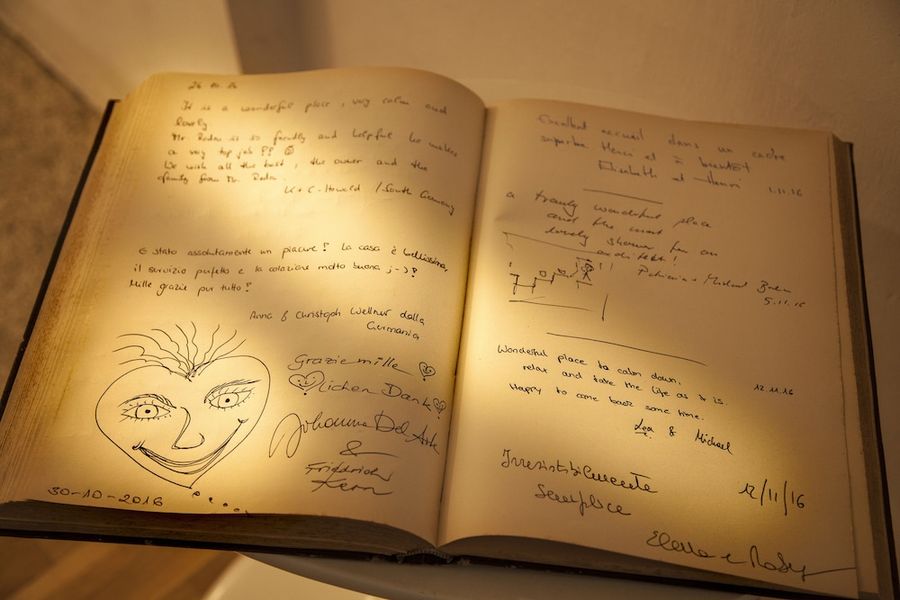 26.10.16
It is a wonderful place, very calm and
lovely
Mr is so friendly and helpful he makes
a very top job!! ☺
We wish all the best, the owner and the
family from Mr
K + C / South Germany
È stato assolutamente un piacere! La casa è bellissima,
il servizio perfetto e la colazione molto buona ;-)!
Mille grazie per tutto!
Anna & Christoph Wellner dalla
Germania
Grazie mille
lichen Dank
Johanna Del
&
Friedrich
Kern
30-10-2016
Excellent accueil dans un cadre
superbe. Merci et à bientôt
Elisabeth et Henri
1.11.16
a truly wonderful place
and the most
lovely shower for an
architekt!
Patricia + Michael
5.11.16
Wonderful place to calm down,
relax and take the life as it is.
12.11.16
Happy to come back some time.
Lea & Michael
Irresistibilmente
semplice
12/11/16